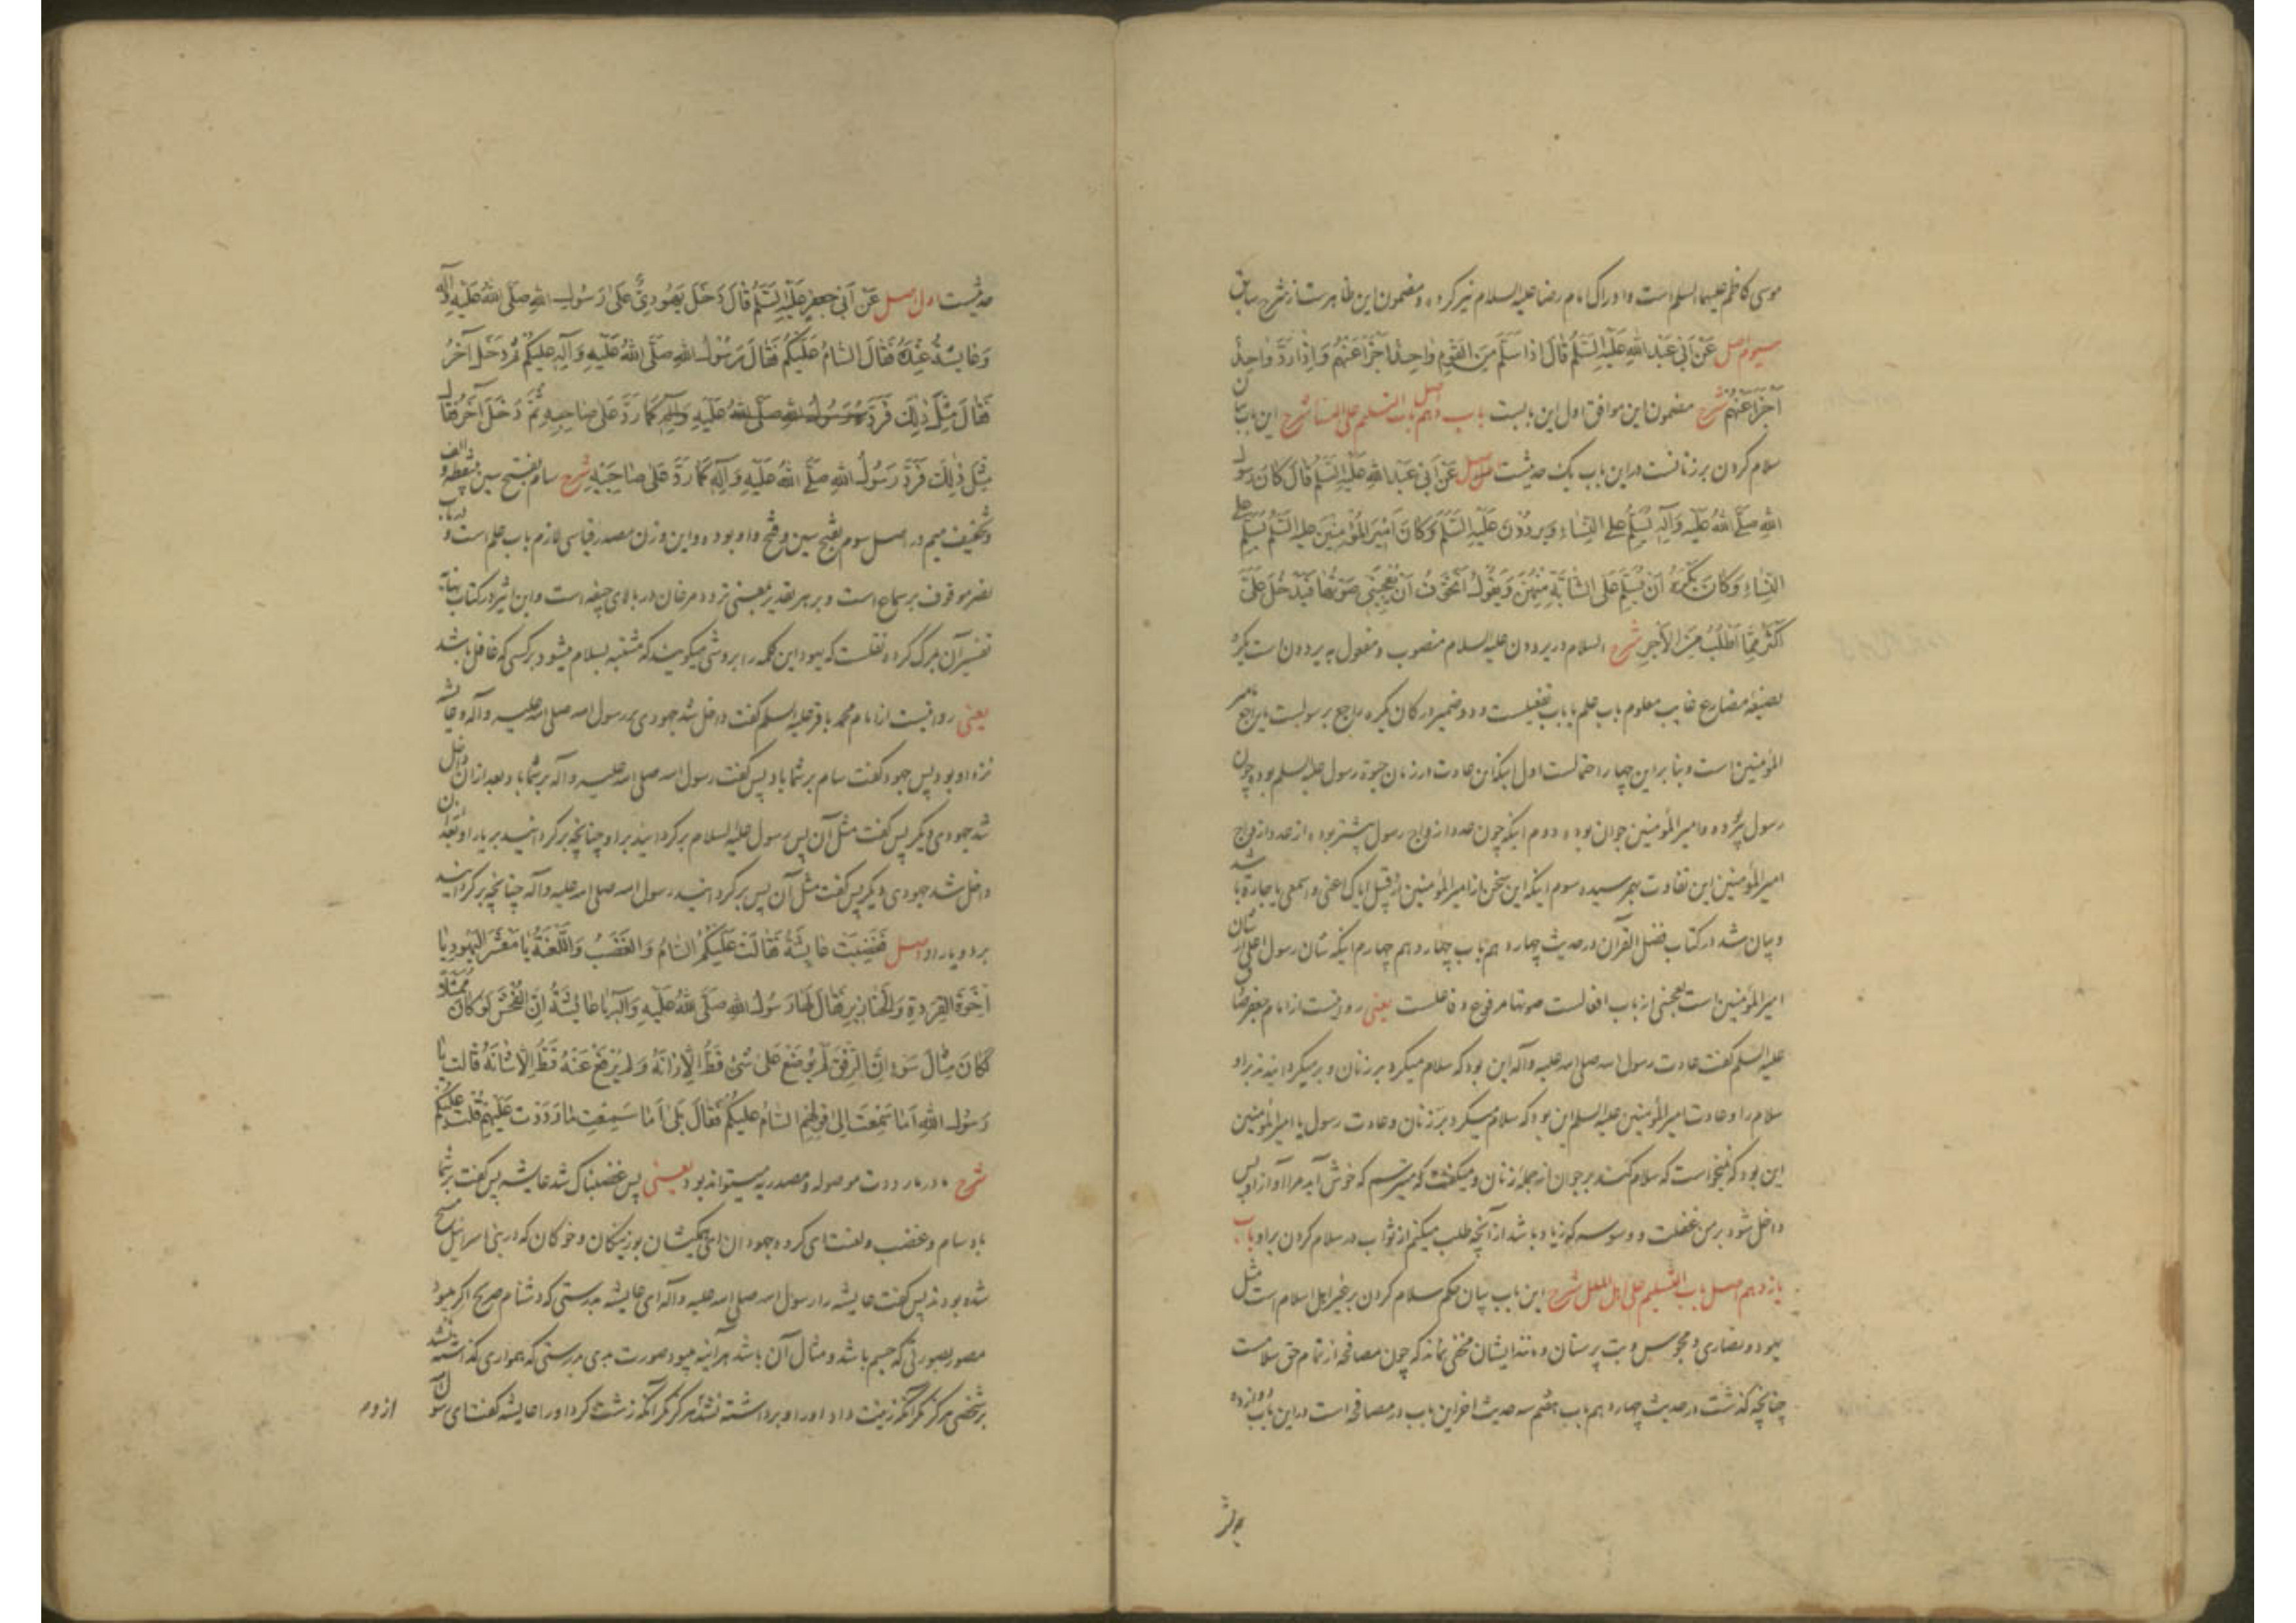 موسی کاظم علیهما السلم است و ادراک امام رضا علیه السلام نیز کرده و مضمون این ظاهرست از شرح سابق
سیوم اصل عَنْ اَبی عَبْدِ اللهِ عَلَیْهِ السَّلَمُ قَالَ اِذا سَلَّمَ مِنَ القَوْمِ واحِدٌ اَجْزَأَ عَنْهُمْ وَ اِذا رَدَّ واحِدٌ
اَجْزَأَ عَنْهُمْ شرح مضمون این موافق اول این بابست باب دهم اصل باب التسلیم علی النسا شرح این باب بیان
سلام کردن بر زنانست در این باب یک حدیثست اصل عَنْ اَبی عَبْدِ اللهِ عَلَیْهِ السَّلَمُ قَالَ کَانَ رَسُولُ
اللهِ صَلَّی اللهُ عَلَیْهِ وَآلِهِ یُسَلِّمُ عَلَی النِّسَاءِ وَیَرْدُدْنَ عَلَیْهِ السَّلَمَ وَکَانَ اَمیرُ المُؤْمِنینَ عَلَیْهِ السَّلَمُ یُسَلِّمُ عَلَی
النِّسَاءِ وَکَانَ یَکْرَهُ اَنْ یُسَلِّمَ عَلَی الشَّابَّةِ مِنْهُنَّ وَیَقُولُ اَتَخَوَّفُ اَنْ یُعْجِبَنی صَوْتُهَا فَیَدْخُلَ عَلَیَّ
اَکْثَرُ مِمَّا اَطْلُبُ مِنَ الاَجْرِ شرح السلام در یرددن علیه السلام منصوب و مفعول به یرددن است یکره
بصیغه مضارع غایب معلوم باب علم یا باب تفعیلست و دو ضمیر در کان یکره راجع برسولست یا راجع بامیر
المؤمنین است و بنا بر این چهار احتمالست اول اینکه این عادت در زمان حیوة رسول علیه السلم بوده چون
رسول پیر بوده و امیر المؤمنین جوان بوده دوم اینکه چون عدد ازواج رسول بیشتر بوده از عدد ازواج
امیر المؤمنین این تفاوت بهم رسیده سوم اینکه این سخن از امیر المؤمنین از قبیل ایاک اعنی و اسمعی یا جاره باشد
و بیان شد در کتاب فضل القرآن در حدیث چهاردهم باب چهاردهم چهارم اینکه شان رسول اعلی از شان
امیر المؤمنین است یعجبنی از باب افعالست صوتها مرفوع و فاعلست یعنی روایتست از امام جعفر صادق
علیه السلم گفت عادت رسول الله صلی الله علیه وآله این بود که سلام میکرد بر زنان و برمیگردانیدند بر او
سلام را و عادت امیر المؤمنین علیه السلم این بود که سلام میکرد بر زنان و عادت رسول یا امیر المؤمنین
این بود که نمیخواست که سلام کند بر جوان از جمله زنان و میگفت که میترسم که خوش آید مرا آواز او پس
داخل شود بر من غفلت و وسوسه که زیاد باشد از آنچه طلب میکنم از ثواب در سلام کردن بر او باب
یازدهم اصل باب التسلیم علی اهل الملل شرح این باب بیان حکم سلام کردن بر غیر اهل اسلام است مثل
یهود و نصاری و مجوس و بت پرستان و مانند ایشان مخفی نماند که چون مصافحه از تمام حق سلامست
چنانچه گذشت در حدیث چهاردهم باب هفتم سه حدیث اخر این باب در مصافحه است در این باب دوازده
حدیثست اول اصل عَنْ اَبی جَعْفَرٍ عَلَیْهِ السَّلَمُ قَالَ دَخَلَ یَهُودِیٌّ عَلَی رَسُولِ اللهِ صَلَّی اللهُ عَلَیْهِ وَآلِهِ
وَعَایِشَةُ عِنْدَهُ فَقَالَ السَّامُ عَلَیْکُمْ فَقَالَ رَسُولُ اللهِ صَلَّی اللهُ عَلَیْهِ وَآلِهِ عَلَیْکُمْ ثُمَّ دَخَلَ آخَرُ
فَقَالَ مِثْلَ ذَلِکَ فَرَدَّ رَسُولُ اللهِ صَلَّی اللهُ عَلَیْهِ وَآلِهِ کَمَا رَدَّ عَلَی صَاحِبِهِ ثُمَّ دَخَلَ آخَرُ فَقَالَ
مِثْلَ ذَلِکَ فَرَدَّ رَسُولُ اللهِ صَلَّی اللهُ عَلَیْهِ وَآلِهِ کَمَا رَدَّ عَلَی صَاحِبَیْهِ شرح سام بفتح سین بینقطه و الف
و تخفیف میم در اصل سوم بفتح سین و فتح واو بوده و این وزن مصدر قیاسی لازم باب علم است و در باب
نصر موقوف بر سماع است و بر هر تقدیر بمعنی تردد مرغان در بالای جیفه است و ابن اثیر در کتاب نهایه
تفسیر آن بمرگ کرده نقلست که یهود این کلمه را بروشی میگویند که مشتبه بسلام میشود بر کسی که غافل باشد
یعنی روایتست از امام محمد باقر علیه السلم گفت داخل شد جهودی بر رسول الله صلی الله علیه وآله و عایشه
نزد او بود پس جهود گفت سام بر شما باد پس گفت رسول الله صلی الله علیه وآله بر شما باد بعد از آن داخل
شد جهودی دیگر پس گفت مثل آن پس رسول علیه السلام برگردانید بر او چنانچه برگردانید بر یار او بعد از آن
داخل شد جهودی دیگر پس گفت مثل آن پس برگردانید رسول الله صلی الله علیه وآله چنانچه برگردانید
بر دو یار او اصل فَغَضِبَتْ عَایِشَةُ فَقَالَتْ عَلَیْکُمُ السَّامُ وَالغَضَبُ وَاللَّعْنَةُ یَا مَعْشَرَ الیَهُودِ یَا
اِخْوَةَ القِرَدَةِ وَالخَنَازِیرِ فَقَالَ لَهَا رَسُولُ اللهِ صَلَّی اللهُ عَلَیْهِ وَآلِهِ یَا عَایِشَةُ اِنَّ الفُحْشَ لَوْ کَانَ مُمَثَّلاً
لَکَانَ مِثَالَ سَوْءٍ اِنَّ الرِّفْقَ لَمْ یُوضَعْ عَلَی شَیْءٍ قَطُّ اِلاَّ زَانَهُ وَلَمْ یُرْفَعْ عَنْهُ قَطُّ اِلاَّ شَانَهُ قَالَتْ یَا
رَسُولَ اللهِ اَمَا سَمِعْتَ اِلَی قَوْلِهِمْ السَّامُ عَلَیْکُمْ فَقَالَ بَلَی اَمَا سَمِعْتِ مَا رَدَدْتُ عَلَیْهِمْ قُلْتُ عَلَیْکُمْ
شرح ما در ما رددت موصوله و مصدریه میتواند بود یعنی پس غضبناک شد عایشه پس گفت بر شما
باد سام و غضب و لعنت ای گروه جهودان ای همکیشان بوزینگان و خوکان که در بنی اسرائیل مسخ
شده بودند پس گفت عایشه را رسول الله صلی الله علیه وآله ای عایشه بدرستی که دشنام صریح اگر میبود
مصور بصورتی که جسم باشد و مثال آن باشد هر آینه میبود صورت بدی بدرستی که همواری گذاشته نشد
بر شخصی هرگز مگر آنکه زینت داد او را و برداشته نشد هرگز مگر آنکه زشت کرد او را عایشه گفت ای رسول
از وم